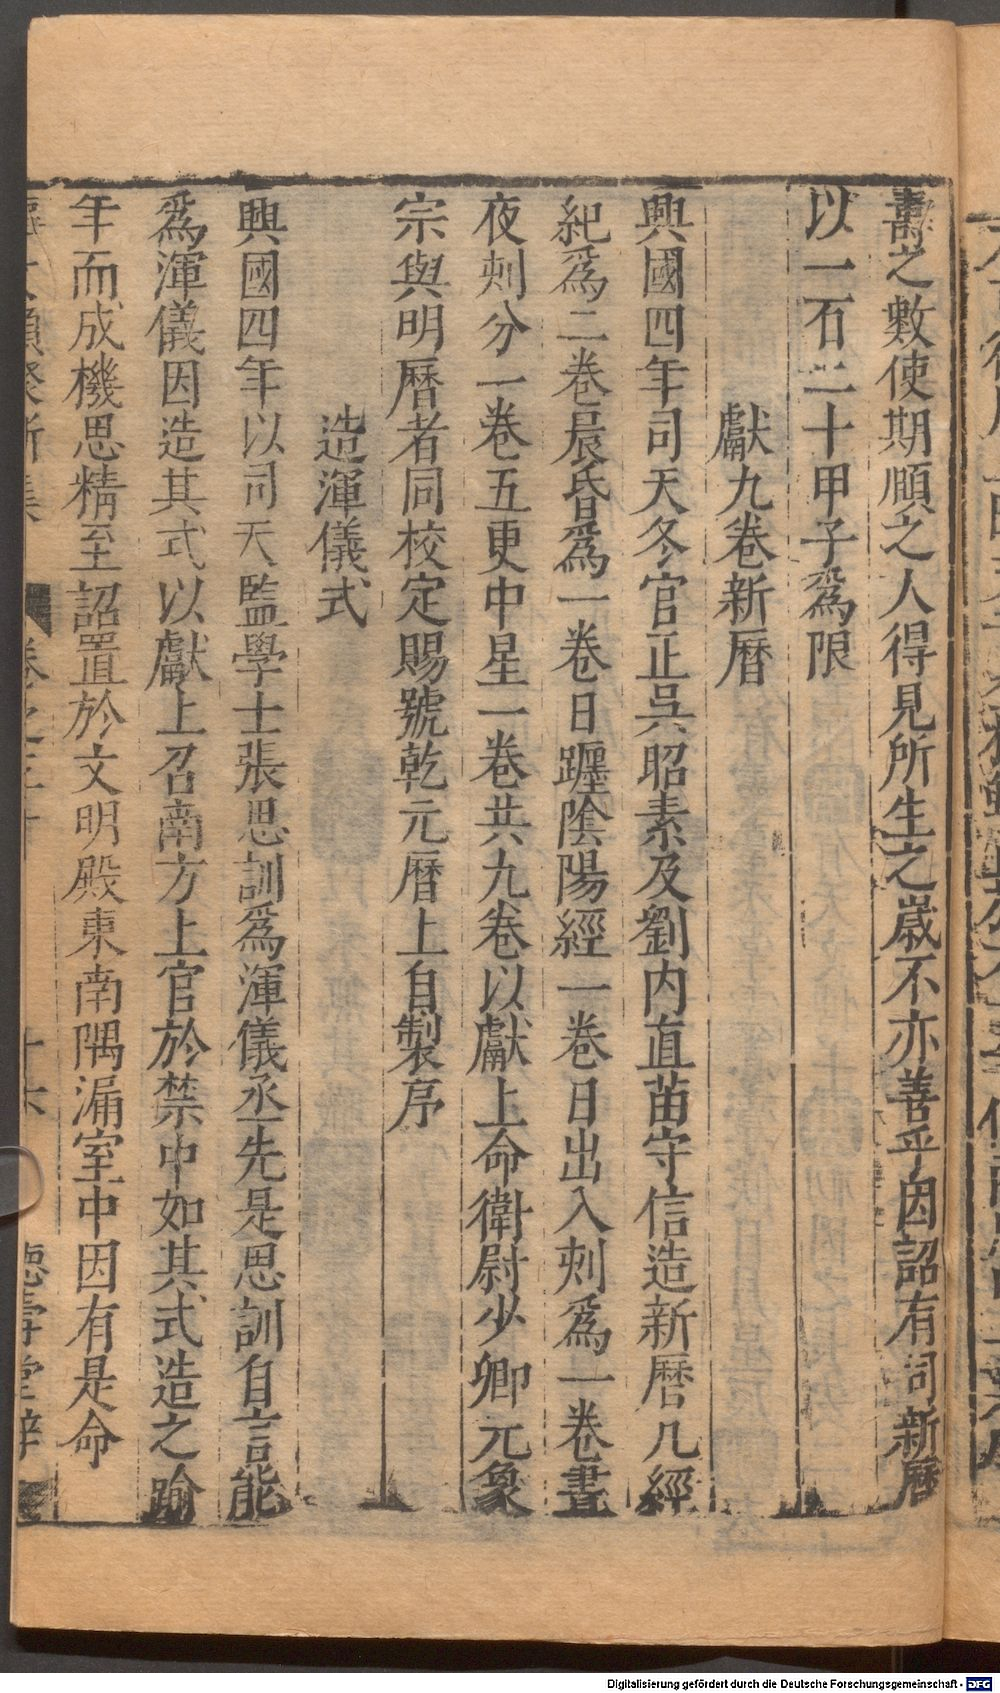 壽之數使期頤之人得見所生之歲不亦善乎因詔有司新曆
以一石二十甲子爲限
獻九卷新曆
興國四年司天冬官正吳昭素及劉内直苗守信造新曆凡經
紀爲二卷晨昏爲一卷日躔陰陽經一卷日出入刻爲一卷晝
夜刻分一卷五更中星一卷共九卷以獻上命衛尉少卿元象
宗與明曆者同校定賜號乾元曆上自製序
造渾儀式
興國四年以司天監學士張思訓爲渾儀丞先是思訓自言能
爲渾儀因造其式以獻上召南方上官於禁中如其式造之踰
年而成機思精至詔置於文明殿東南隅漏室中因有是命
卷之 十六 德壽堂梓
Digitalisierung gefördert durch die Deutsche Forschungsgemeinschaft - DFG